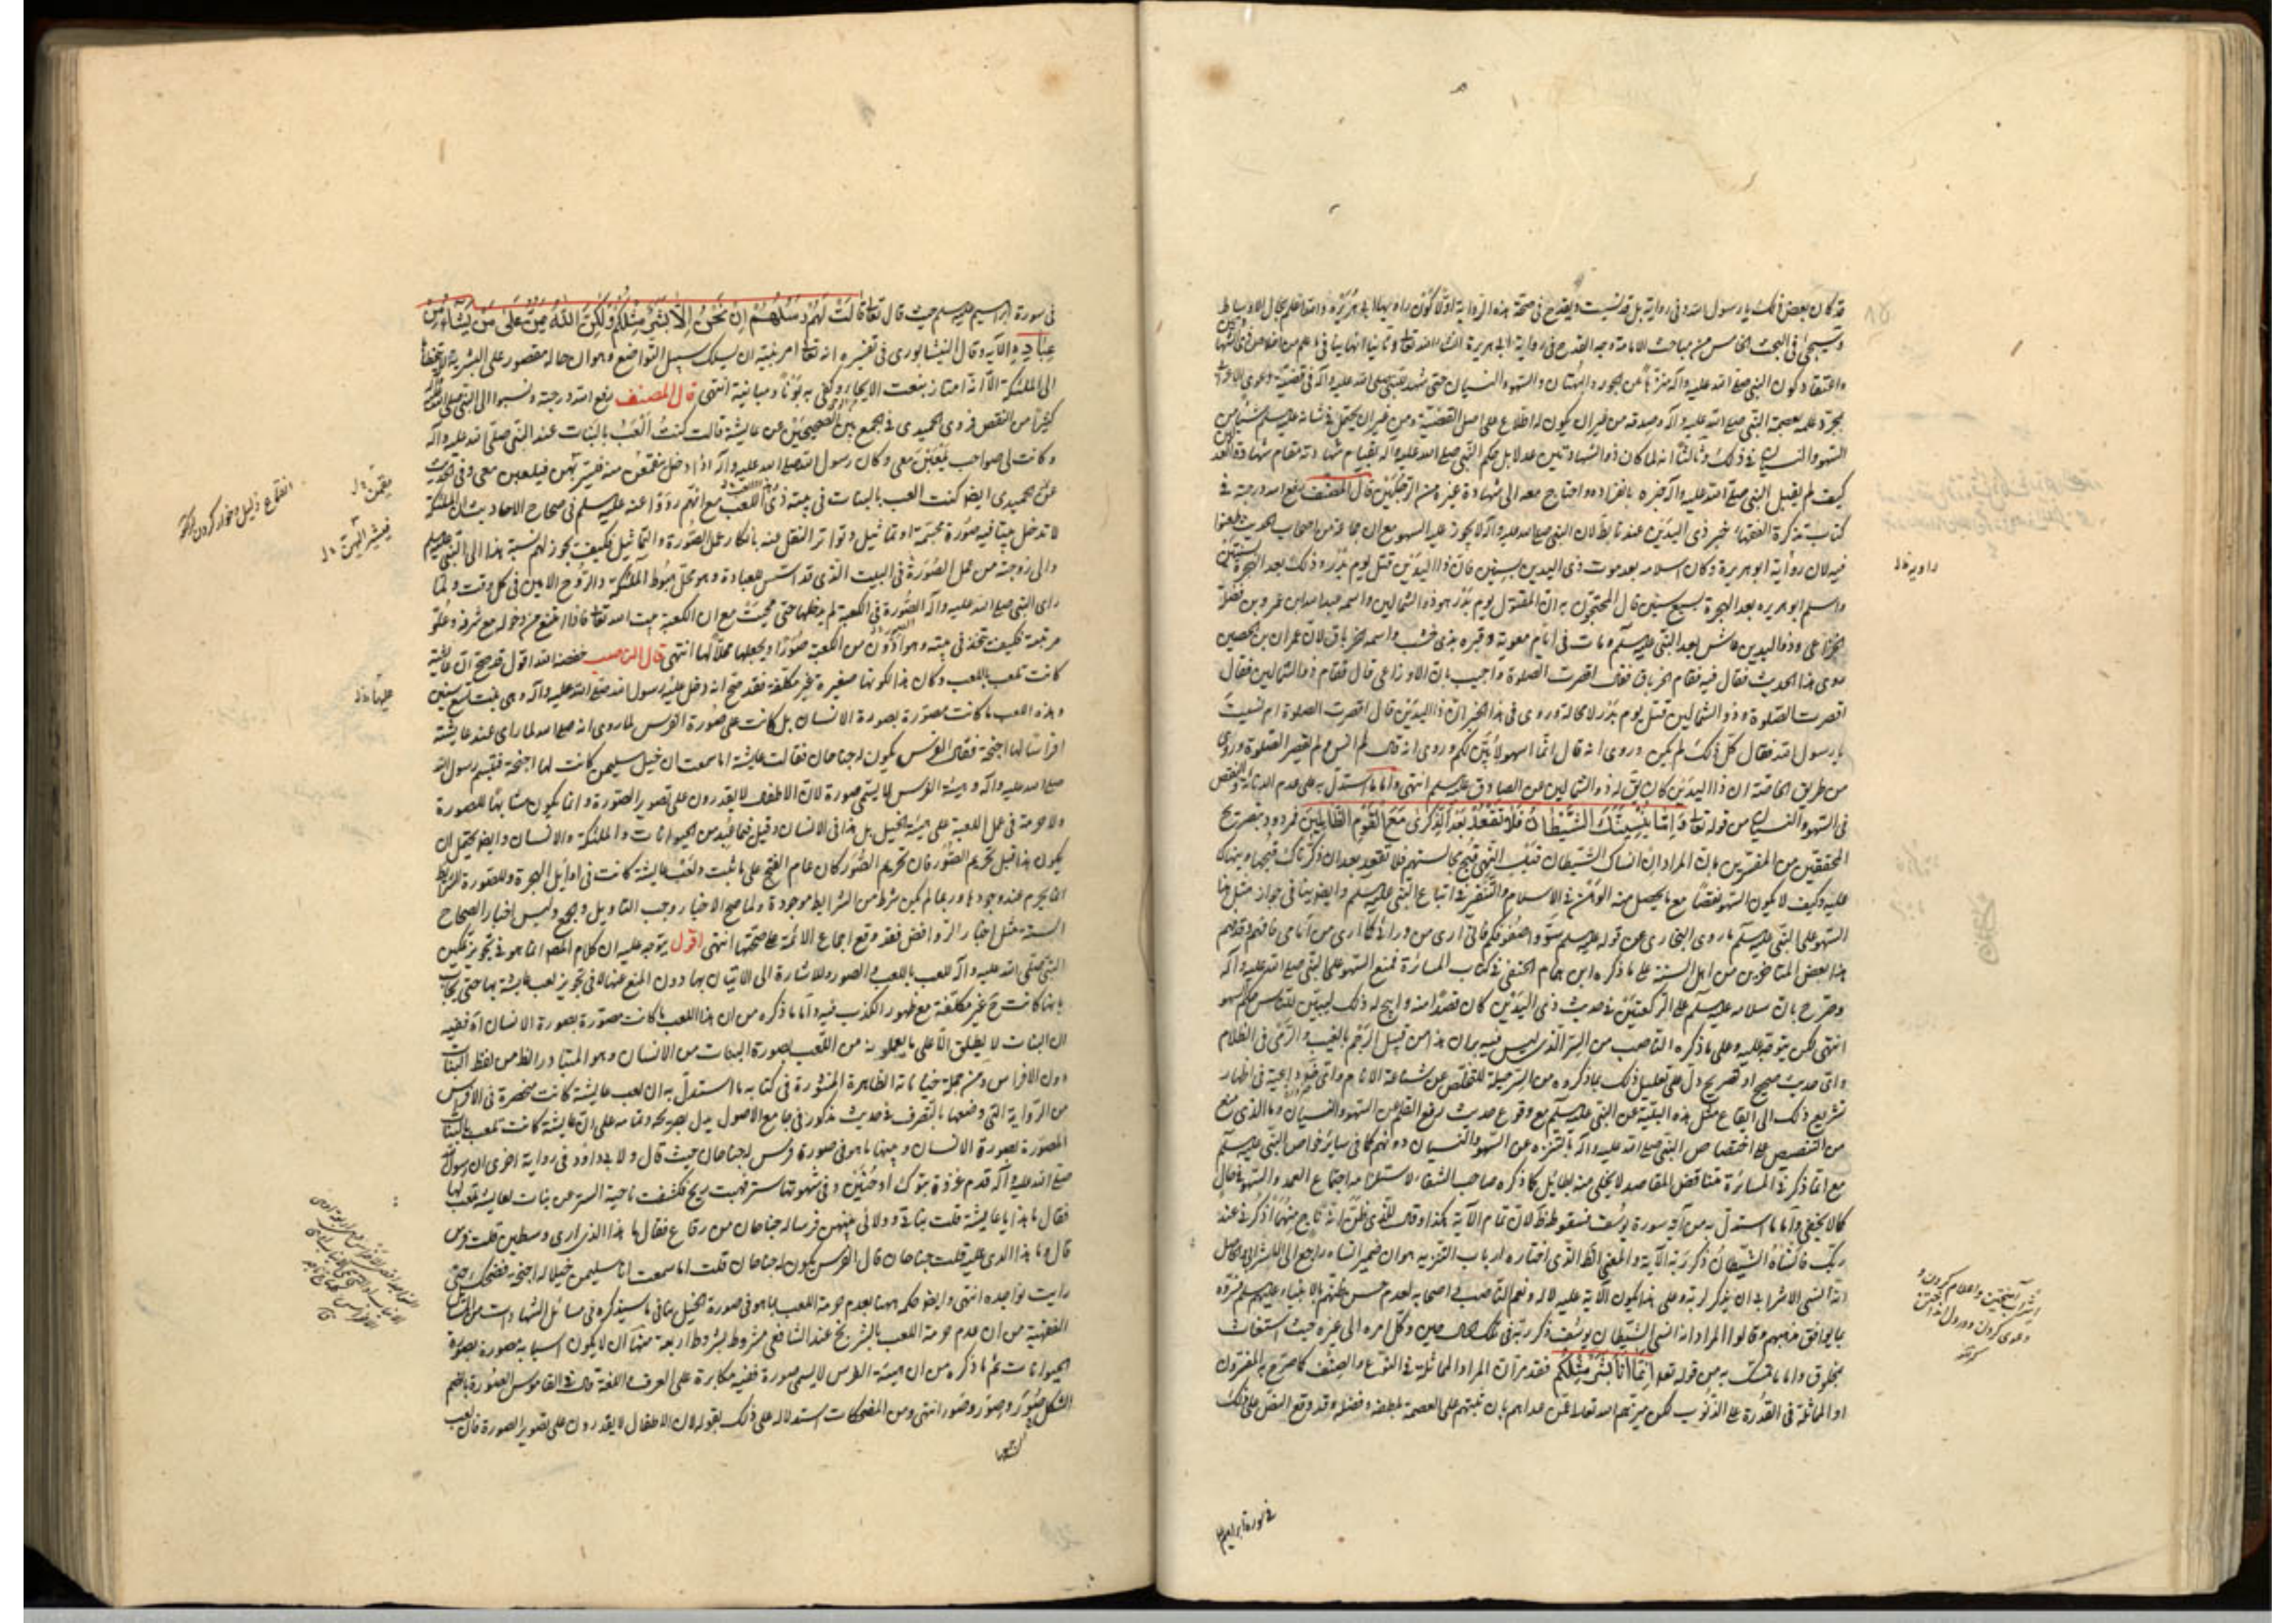 قد كان بعض ذلك يا رسول الله وفي رواية بل قد نسيت ويقدح في صحة هذه الرواية اولا كون راويها ابا هريرة
وسيجئ في البحث الخامس من مباحث الامامة وجه القدح في رواية ابي هريرة
واعتقاد كون النبي صلى الله عليه وآله منزها عن الجور والبهتان والسهو والنسيان حتى شهد للنبي صلى الله عليه وآله في قضية دعوى الاعرابي
بمجرد علمه بعصمة النبي صلى الله عليه وآله وصدقه من غير ان يكون له اطلاع على اصل القضية ومن غير ان يحتمل في شانه عليه السلام شيئا من
السهو والنسيان في ذلك وثالثا انه لما كان ذو الشهادتين عدلا بل حكم النبي صلى الله عليه وآله بقيام شهادته مقام شهادة العدلين
كيف لم يقبل النبي صلى الله عليه وآله خبره بانفراده واحتاج معه الى شهادة غيره من الرجلين قال المصنف رفع الله درجته في
كتاب تذكرة الفقهاء خبر ذي اليدين عندنا باطل لان النبي صلى الله عليه وآله لا يجوز عليه السهو مع ان جماعة من اصحاب الحديث طعنوا
فيه لان رواية ابو هريرة وكان اسلامه بعد موت ذي اليدين بسنتين فان ذا اليدين قتل يوم بدر وذلك بعد الهجرة بسنتين
واسلم ابو هريرة بعد الهجرة بسبع سنين قال المحتجون به ان المقتول يوم بدر هو ذو الشمالين واسمه عبد الله بن عمرو بن فضلة
الخزاعي وذو اليدين عاش بعد النبي عليه السلم ومات في ايام معوية وقبره بذي خشب واسمه الخرباق لان عمران بن الحصين
روى هذا الحديث فقال فيه فقام الخرباق فقال اقصرت الصلوة واجيب بان الاوزاعي قال فقام ذو الشمالين فقال
اقصرت الصلوة وذو الشمالين قتل يوم بدر لا محالة وروي في هذا الخبر ان ذا اليدين قال اقصرت الصلوة ام نسيت
يا رسول الله فقال كل ذلك لم يكن وروي انه قال انما اسهو لابين لكم وروي انه قال لم انس ولم تقصر الصلوة وروي
من طريق الخاصة ان ذا اليدين كان يقال له ذو الشمالين عن الصادق عليه السلم انتهى واما ما استدل به على عدم
في السهو والنسيان من قوله تعالى وَاِمَّا يُنْسِيَنَّكَ الشَّيْطَانُ فَلَا تَقْعُدْ بَعْدَ الذِّكْرٰى مَعَ الْقَوْمِ الظَّالِمِينَ فمردود بتصريح
المحققين من المفسرين بان المراد ان انساك الشيطان قبل النهي قبح مجالستهم فلا تقعد بعد ان ذكرناك قبحها ونهيناك
عليه وكيف لا يكون السهو نقصا مع ما يحصل منه الوهن في الاسلام والتنفر في اتباع النبي عليه السلم وايضا ينافي جواز مثل هذا
السهو على النبي عليه السلم ما روى البخاري عن قوله عليه السلم سووا صفوفكم فاني ارى من ورائي كما ارى من امامي
بعض المتاخرين من اهل السنة على ما ذكره ابن همام الحنفي في كتاب المسائرة فمنع السهو على النبي صلى الله عليه وآله
وصرح بان سلامه عليه السلم على الركعتين في حديث ذي اليدين كان قصدا منه وابيح له ذلك ليبين للناس حكم السهو
انتهى لكن يتوجه عليه وعلى ما ذكره الناصب من السر الذي ليس فيه برهان هذا من قبيل الرجم بالغيب والرمي في الظلام
واي حديث صحيح او تصريح دل على تعليل ذلك بما ذكروه من السر حيلة للتخلص عن شناعة الانام
تشريع ذلك الى ايقاع مثل هذه البلية عن النبي عليه السلم مع وقوع حديث رفع القلم عن السهو والنسيان وما الذي منع
من التنصيص على اختصاص النبي صلى الله عليه وآله بالتنزه عن السهو والنسيان دونهم كما في سائر خواص النبي عليه السلم
مع ان ما ذكر في المسائرة مناقض المقاصد لا يخلى منه بطائل كما ذكره صاحب الشفاء لاستلزامه اجتماع العمد والسهو في حال
كما لا يخفى واما ما استدل به من آية سورة يوسف فسقوطه ظ لان تمام الآية هكذا وقال للذي ظن انه ناج منهما اذكرني عند
ربك فانساه الشيطان ذكر ربه الآية والمعنى الظ الذي اختاره ارباب التنزيه هو ان ضمير انساه راجع الى
انه انسى الشرابي ان يذكر لربه وعلى هذا يكون الآية عليه لا له
بما يوافق مذهبهم وقالوا المراد انه انسى الشيطان يوسف ذكر ربه في تلك الحال حين وكل امره الى غيره حيث استغاث
بمخلوق واما ما تمسك به من قوله تعالى اِنَّمَا اَنَا بَشَرٌ مِثْلُكُمْ فقد مر ان المراد المماثلة في النوع والصنف كما صرح به المفسرون
او المماثلة في القدرة على الذنوب لكن ميزهم الله تعالى عمن عداهم بان ثبتهم على العصمة بلطفه وفضله وقد وقع النص على ذلك
في سورة ابراهيم
راويه خ ل
في سورة ابراهيم عليه السلم حيث قال تعالى قَالَتْ لَهُمْ رُسُلُهُمْ اِنْ نَحْنُ اِلَّا بَشَرٌ مِثْلُكُمْ وَلٰكِنَّ اللّٰهَ يَمُنُّ عَلٰى مَنْ يَشَاءُ مِنْ
عِبَادِهِ الآية وقال النيشابوري في تفسيره انه تعالى امر نبيه ان يسلك سبيل التواضع وهو ان حاله مقصور على البشرية لا يتخطاها
الى الملئكة الا انه امتاز بنعت الايحاء وكفى به بونا ومباينة انتهى قال المصنف رفع الله درجته ونسبوا الى النبي صلى الله عليه وآله
كثيرا من النقص فروى الحميدي في الجمع بين الصحيحين عن عايشة قالت كنت العب بالبنات عند النبي صلى الله عليه وآله
وكانت لي صواحب يلعبن معي وكان رسول الله صلى الله عليه وآله اذا دخل ينقمعن منه فيسربهن فيلعبن معي وفي حديث
عن الحميدي ايضا كنت العب بالبنات في بيته وهي اللعب مع انهم رووا عنه عليه السلم في صحاح الاحاديث ان الملئكة
لا تدخل بيتا فيه صورة مجسمة او تماثيل وتواتر النقل عنه بانكار عمل الصورة والتماثيل فكيف يجوز لهم نسبة هذا الى النبي عليه السلم
والى زوجته من عمل الصورة في البيت الذي قد اسس للعبادة وهو محل هبوط الملئكة والروح الامين في كل وقت ولما
راى النبي صلى الله عليه وآله الصورة في الكعبة لم يدخلها حتى محيت مع ان الكعبة بيت الله تعالى فاذا امتنع من دخوله مع شرفه وعلو
مرتبته فكيف يتخذ في بيته وهو ادون من الكعبة صورا ويجعلها محلا لها انتهى قال الناصب خفضه الله اقول قد صح ان عايشة
كانت تلعب باللعب وكان هذا لكونها صغيرة غير مكلفة فقد صح انه دخل عليه رسول الله صلى الله عليه وآله وهي بنت تسع سنين
وهذه اللعب ما كانت مصورة بصورة الانسان بل كانت على صورة الفرس لما روي انه صلى الله لما راى عند عايشة
افراسا لها اجنحة فقال الفرس يكون له جناحان فقالت عايشة اما سمعت ان خيل سليمن كانت لها اجنحة فتبسم رسول الله
صلى الله عليه وآله وهيئة الفرس لا يسمى صورة لان الاطفال لا يقدرون على تصوير الصورة وانما يكون مشابها للصورة
ولا حرمة في عمل اللعبة على هيئة الخيل بل هذا في الانسان وقيل فيما يعبد من الحيوانات والملئكة والانسان وايضا يحتمل ان
يكون هذا قبل تحريم الصور فان تحريم الصور كان عام الفتح على ما ثبت ولعب عايشة كانت في اوايل الهجرة وللصورة شرايط
انما يحرم عند وجودها وربما لم يكن شرط من الشرايط موجودة ولما صح الاخبار وجب التاويل والجمع وليس اخبار الصحاح
الستة مثل اخبار الروافض فقد وقع اجماع الائمة على صحتها انتهى اقول يتوجه عليه ان كلام المص انما هو في تجويز تمكين
النبي صلى الله عليه وآله للعب باللعب والصور وللاشارة الى الاتيان بها دون المنع عنها لا في تجويز لعب عايشة بها حتى يجاب
بانها كانت ح غير مكلفة مع ظهور الكذب فيه واما ما ذكره من ان هذا اللعب ما كانت مصورة بصورة الانسان اه ففيه
ان البنات لا يطلق الا على ما يعملونه من اللعب بصورة البنات من الانسان وهو المتبادر الظ من لفظ البنات
دون الافراس ومن جملة خياناته الظاهرة المنشورة في كتابه ما استدل به ان لعب عايشة كانت منحصرة في الافراس
من الرواية التي وضعها بالتصرف في حديث مذكور في جامع الاصول يدل بصريحه وتمامه على ان عايشة كانت تلعب بالبنات
المصورة بصورة الانسان وبينها ما هو في صورة فرس له جناحان حيث قال ولابي داود في رواية اخرى ان رسول الله
صلى الله عليه وآله قدم غزوة تبوك او حنين وفي سهوتها ستر فهبت ريح فكشفت ناحية الستر عن بنات لعايشة تلعب بها
فقال ما هذا يا عايشة قلت بناتي وراى بينهن فرسا له جناحان من رقاع فقال ما هذا الذي ارى وسطهن قلت فرس
قال وما هذا الذي عليه قلت جناحان قال الفرس يكون له جناحان قلت اما سمعت ان سليمن خيلا له اجنحة فضحك حتى
رايت نواجذه انتهى وايضا حكمه ههنا بعدم حرمة اللعب بما هو في صورة الخيل ينافي ما سيذكره في مسائل الشهادات من المسائل
الفقهية من ان عدم حرمة اللعب بالشطرنج عند الشافعي مشروط بشروط اربعة منها ان لا يكون اسبابه مصورة بصورة
الحيوانات ثم ما ذكره من ان هيئة الفرس لا يسمى صورة ففيه مكابرة على العرف واللغة قال في القاموس الصورة بالضم
الشكل صُوَر وصِوَر وصور انتهى ومن المضحكات استدلاله على ذلك بقوله لان الاطفال لا يقدرون على تصوير الصورة فان لعب
عليها خ ل